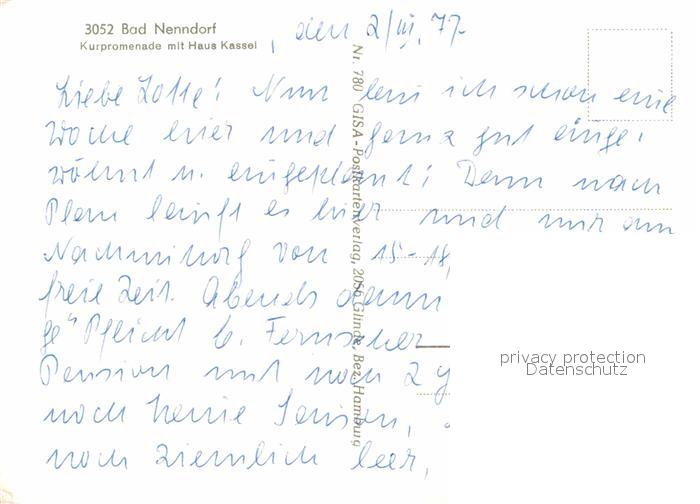 3052 Bad Nenndorf
Kurpromenade mit Haus Kassel
, den 2/III. 77.
Liebe Lotte! Nun bin ich schon eine
Woche hier und ganz gut einge-
wöhnt u. eingeplant! Denn nach
Plan läuft es hier und nur am
Nachmittag von 15-18,
freie Zeit. Abends dann
Pflicht b. Fernseher
Pension und noch 2 g
noch keine Saison,
noch ziemlich leer,
Nr. 780 GISA-Postkartenverlag, 2056 Glinde, Bez. Hamburg
privacy protection
Datenschutz